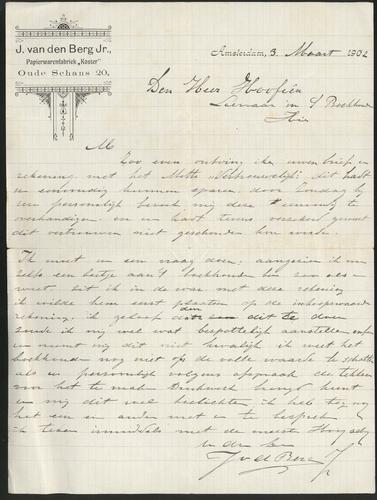 J. van den Berg Jr.,
Papierwarenfabriek „Koster”
Oude Schans 20.
Amsterdam, 3 Maart 1902
Den Heer
Leeraar in 't
Hier
M
Zoo even ontving ik uwen brief en
rekening, met het Motto „Vertrouwelijk”; dit hadt
u eenvoudig kunnen sparen, door Zondag bij
een persoonlijk bezoek mij deze
overhandigen, en u hadt tevens verzekerd geweest
dit vertrouwen niet geschonden zou worden.
Ik moet u een vraag doen; aangezien ik nu
zelfs een beetje aan't boekhouden ben zoo als u
weet, zit ik in de war met deze rekening
ik wilde hem eerst plaatsen op de
rekening, ik geloof dit te doen
zoude ik mij wel wat bespottelijk aanstellen
u neemt mij dit niet kwalijk ik weet het
boekhouden nog niet op de volle waarde te schatten
als u persoonlijk volgens afspraak de
van het te maken Drukwerk kunt
u mij dit wel ik heb
het een en ander met u te bespreken
ik teeken inmiddels met de meeste Hoogachting
J v d Berg Jr